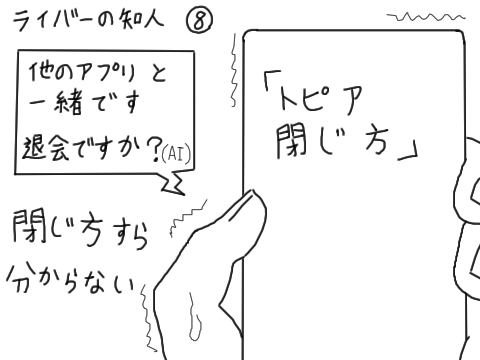 ライバーの知人 ⑧
他のアプリと
一緒です
退会ですか?(AI)
「トピア
閉じ方」
閉じ方すら
分からない